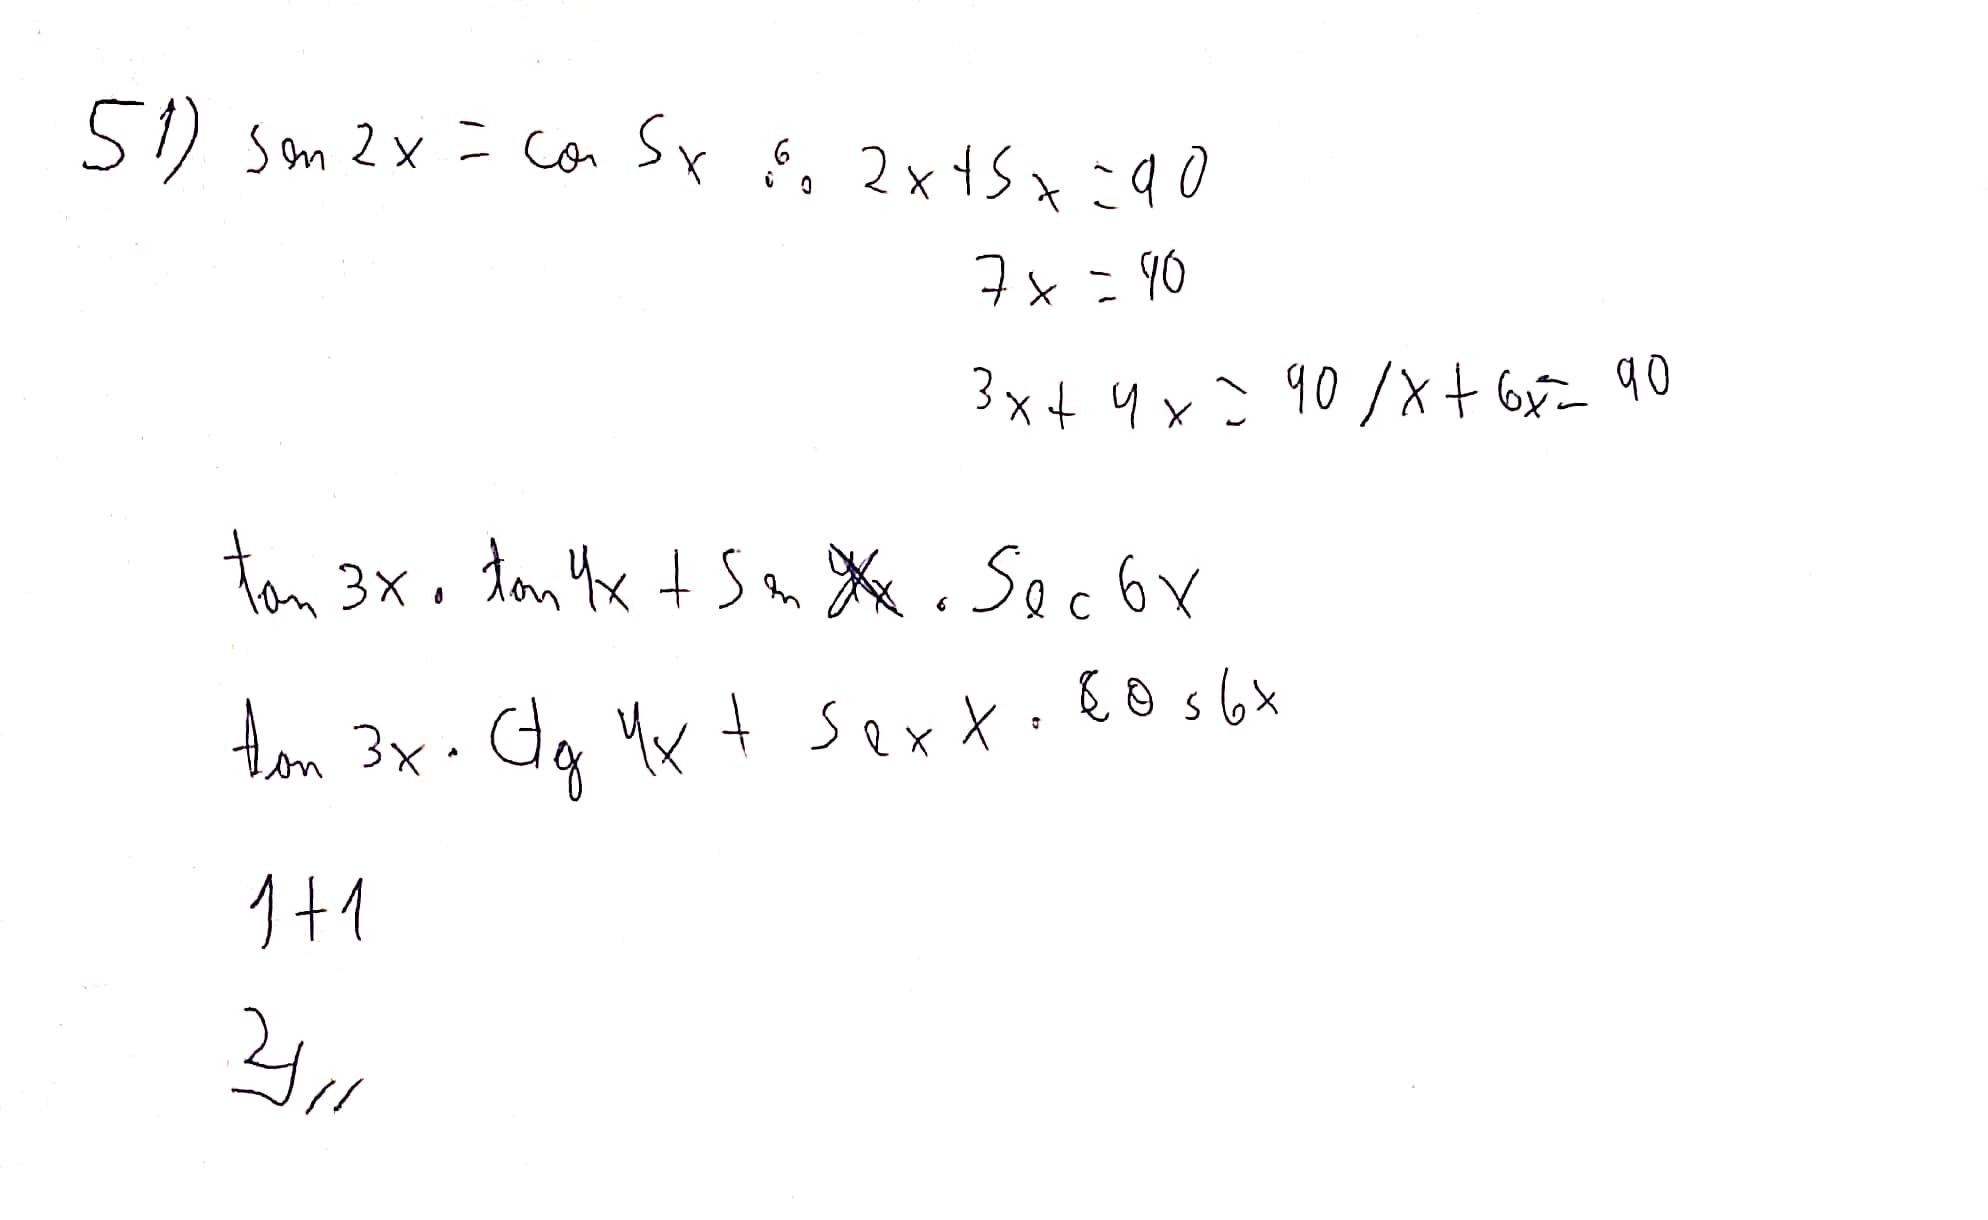 51) sen 2x = cos 5x ∴ 2x+5x=90
7x = 90
3x+4x = 90 / x+6x = 90
tan 3x . tan 4x + sen x . Sec 6x
tan 3x . Ctg 4x + sex x . cos 6x
1+1
2//